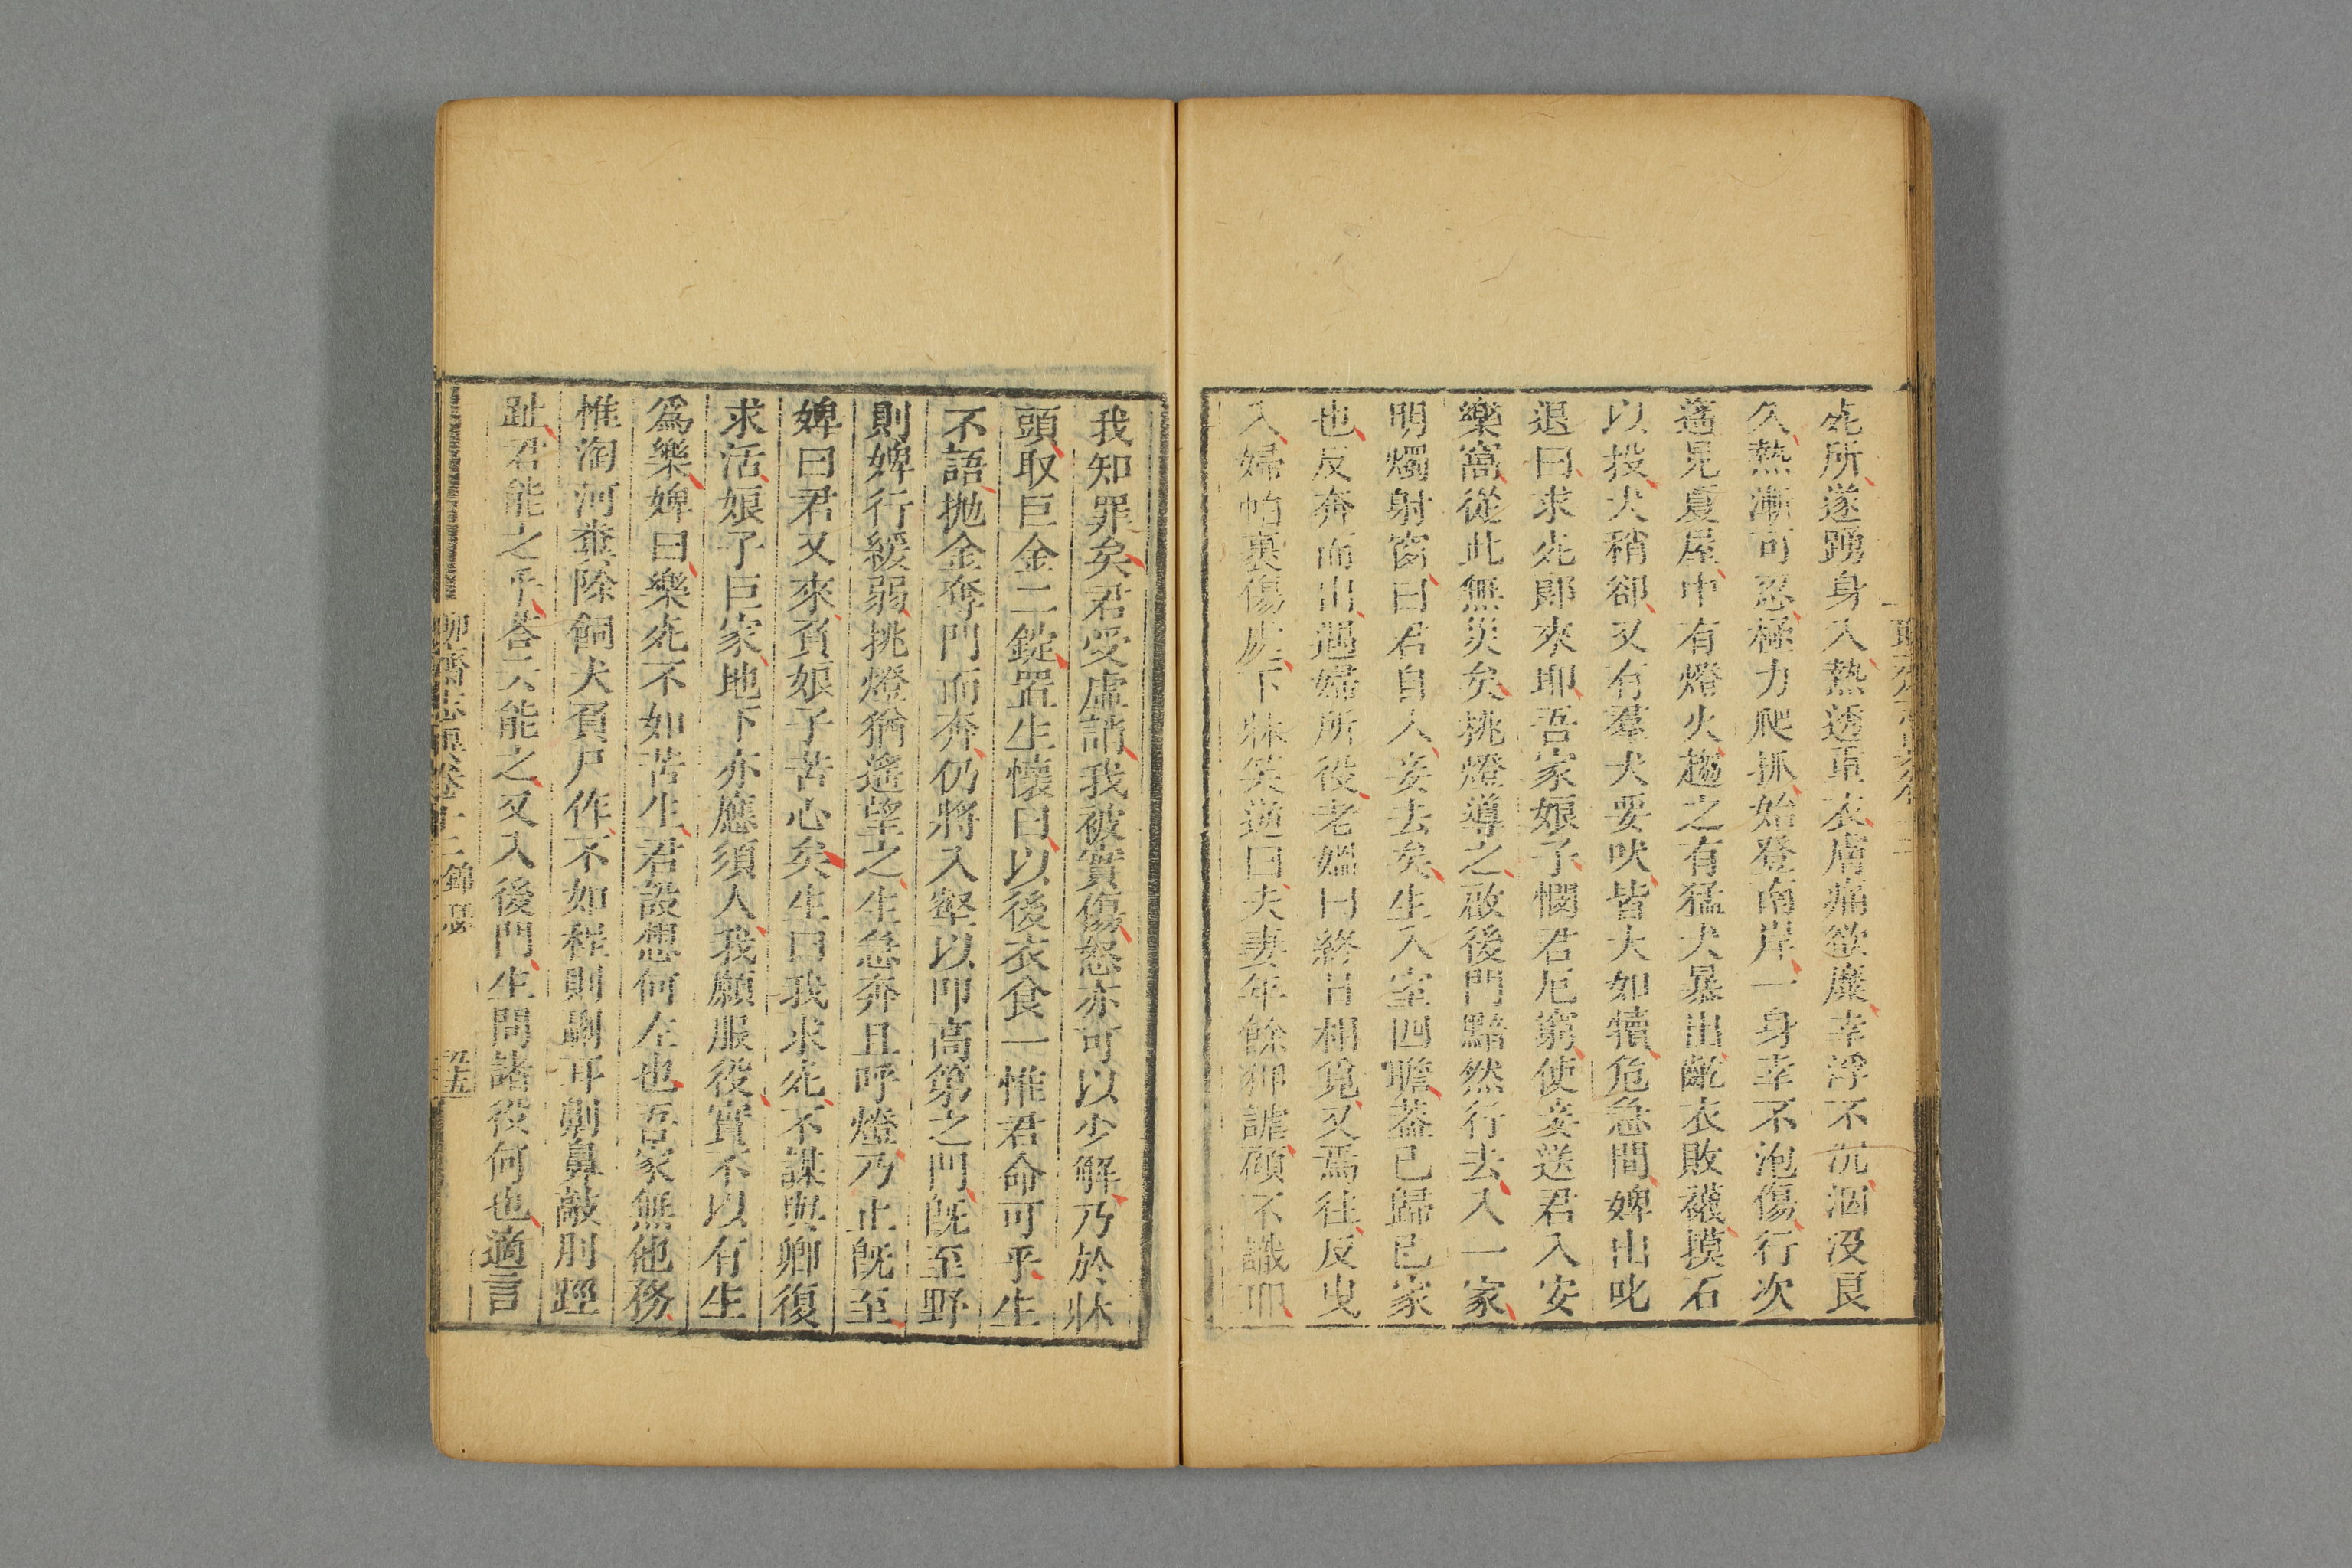 死所遂踴身入熱透重衣膚痛欲糜幸浮不沉泅沒良
久熱漸可忍極力爬抓始登南岸一身幸不泡傷行次
遙見夏屋中有燈火趨之有猛犬暴出齕衣敗襪摸石
以投犬稍卻又有羣犬要吠皆大如犢危急間婢出叱
退曰求死郎來耶吾家娘子憫君厄窮使妾送君入安
樂窩從此無災矣挑燈導之啟後門黯然行去入一家
明燭射窗曰君自入妾去矣生入室四瞻葢已歸己家
也反奔而出遇婦所役老媼曰終日相覓又焉往反曳
入婦帕裹傷處下牀笑逆曰夫妻年餘狎謔顧不識耶
我知罪矣君受虛誚我被實傷怒亦可以少解乃於牀
頭取巨金二錠置生懷曰以後衣食一惟君命可乎生
不語抛金奪門而奔仍將入壑以叩高第之門旣至野
則婢行緩弱挑燈猶遙望之生急奔且呼燈乃止旣至
婢曰君又來負娘子苦心矣生曰我求死不謀與卿復
求活娘子巨家地下亦應須人我願服役實不以有生
爲樂婢曰樂死不如苦生君設想何左也吾家無他務
惟淘河糞除飼犬負尸作不如程則刵耳劓鼻敲刖脛
趾君能之乎荅云能之又入後門生問諸役何也適言
聊齋志異卷十二 錦瑟